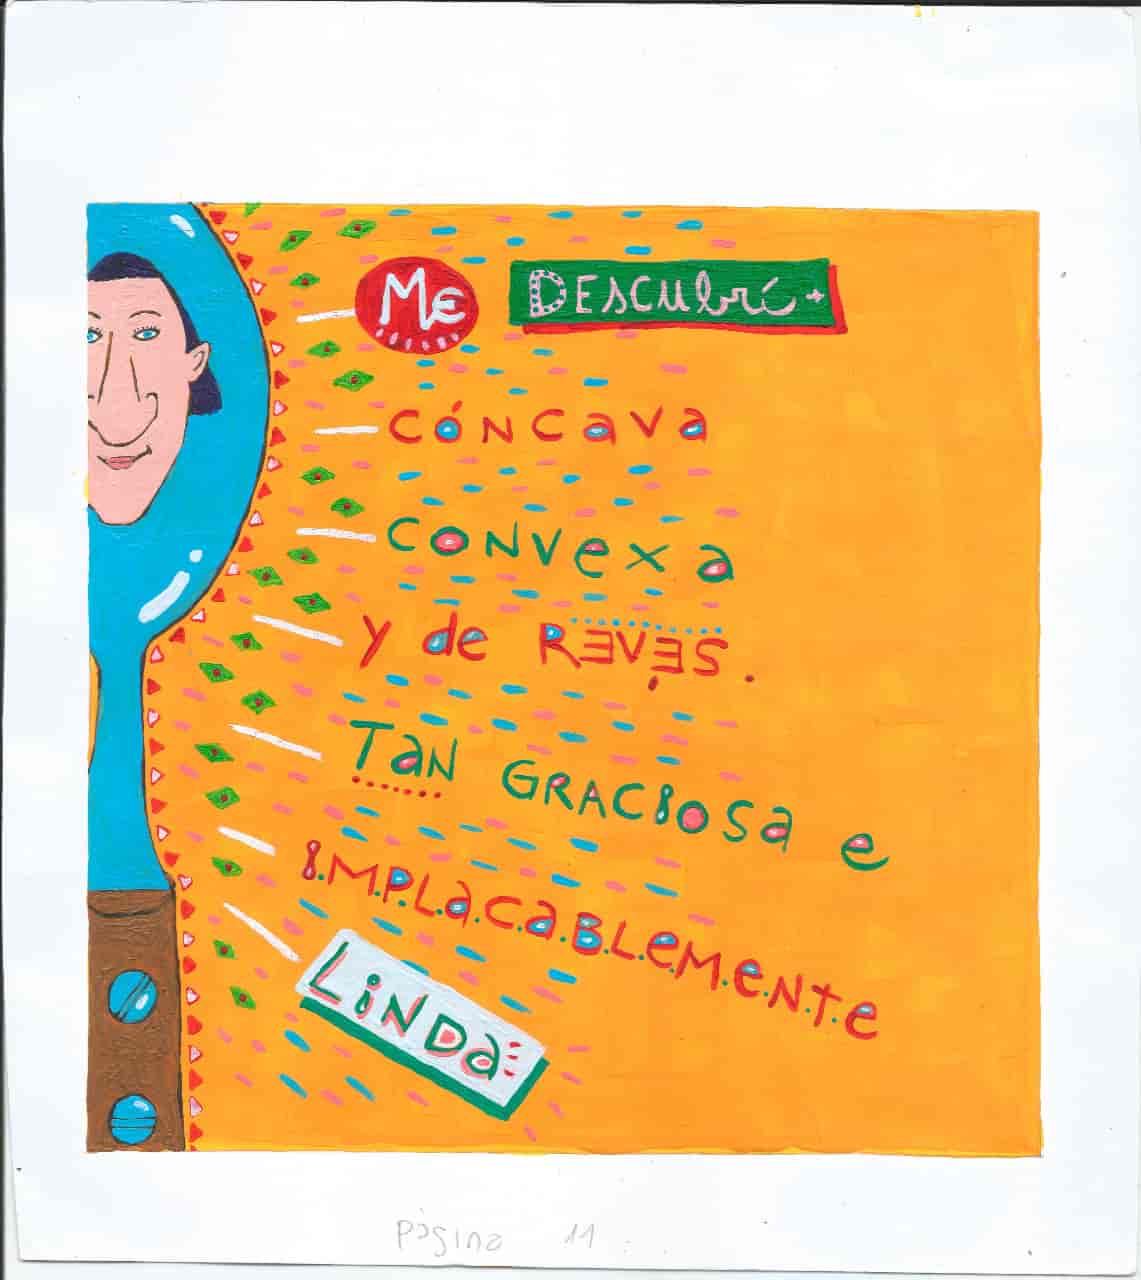 Me Descubrí
cóncava
convexa
y de Revés.
Tan Graciosa e
i.m.p.l.a.c.a.b.l.e.m.e.n.t.e
Linda
Página 11